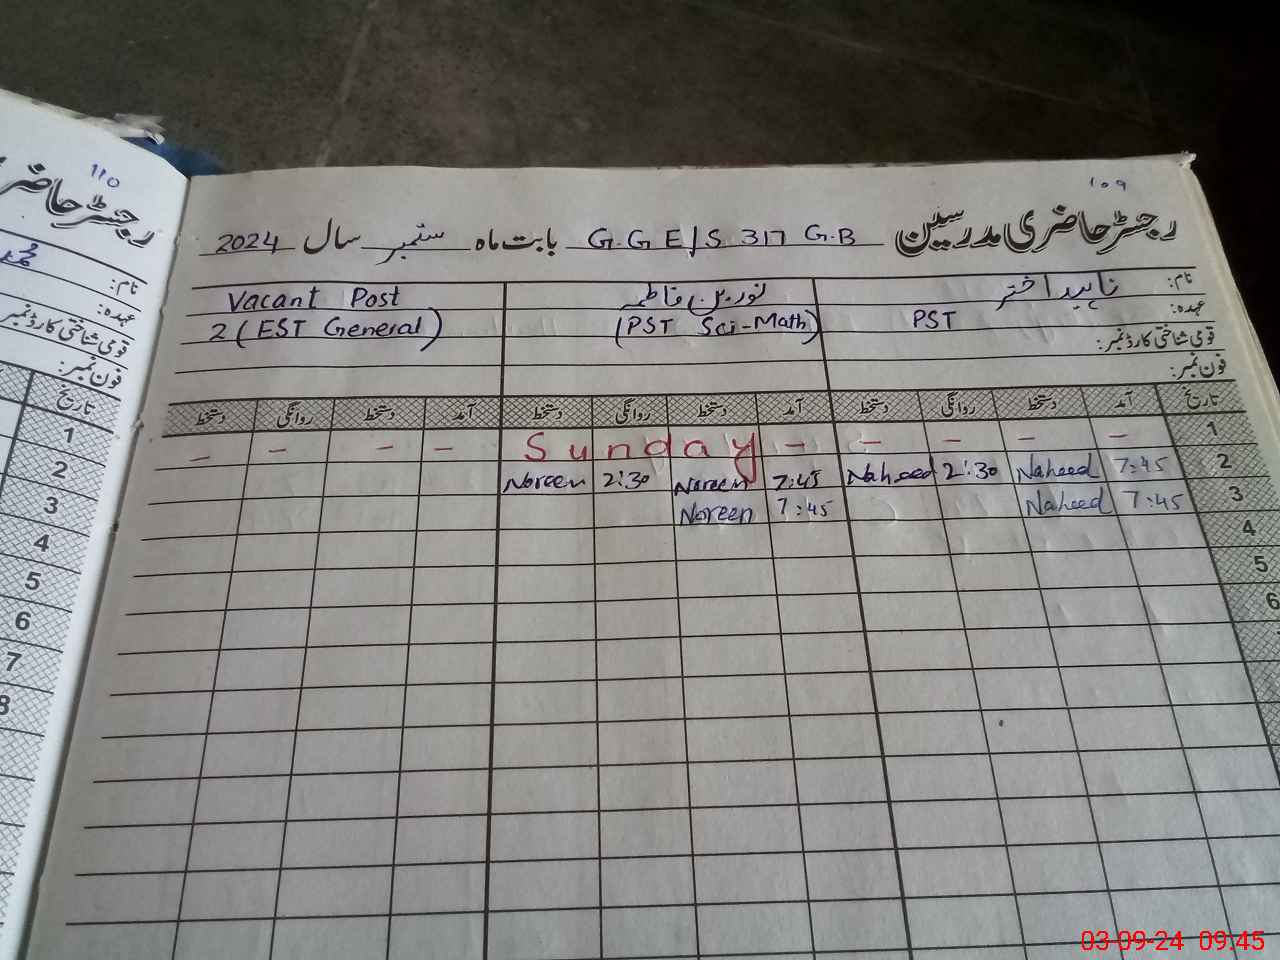 ۱۰۹
رجسٹر حاضری مدرسین G.G.E/S 317 G.B بابت ماہ ستمبر سال 2024
نام: ناہید اختر نورین فاطمہ Vacant Post
عہدہ: PST (PST Sci-Math) 2 (EST General)
قومی شناختی کارڈ نمبر:
فون نمبر:
تاریخ آمد دستخط روانگی دستخط آمد دستخط روانگی دستخط آمد دستخط روانگی دستخط
1 – – – – – Sunday – – – –
2 7:45 Naheed 2:30 Naheed 7:45 Noreen 2:30 Noreen
3 7:45 Naheed 7:45 Noreen
4
5
6
110
رجسٹر حاضر
نام: محمد
عہدہ:
قومی شناختی کارڈ نمبر
فون نمبر:
تاریخ
1
2
3
4
5
6
7
8
03-09-24 09:45